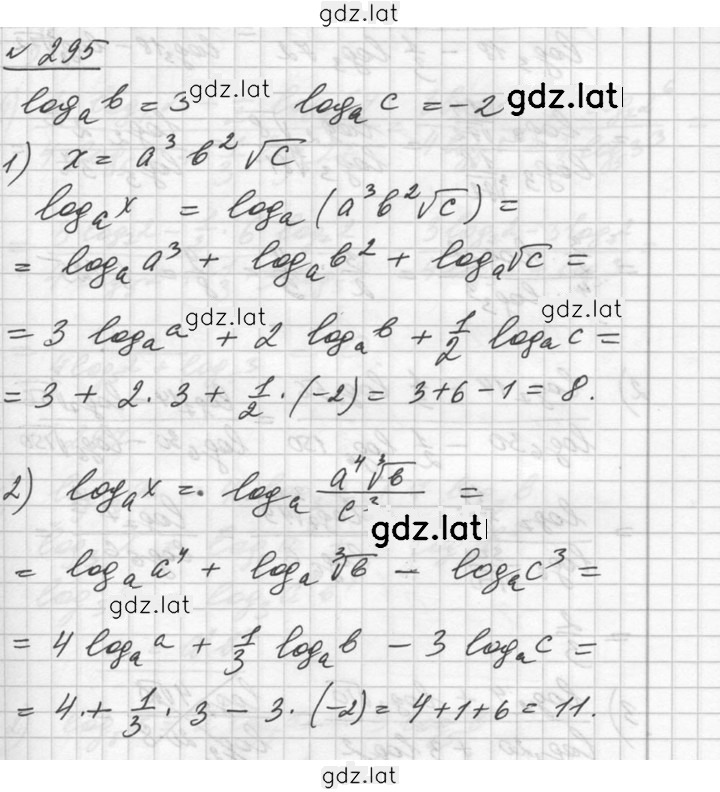 gdz.lat
№ 295
logₐ b = 3 gdz.lat logₐ c = -2 gdz.lat
1) x = a³ b² √c
logₐ x = logₐ (a³b²√c) =
= logₐ a³ + logₐ b² + logₐ √c =
gdz.lat gdz.lat
= 3 logₐ a + 2 logₐ b + 1/2 logₐ c =
= 3 + 2·3 + 1/2·(-2) = 3+6-1 = 8.
2) logₐ x = logₐ (a⁴ ∛b)/c =
gdz.lat
= logₐ a⁴ + logₐ ∛b - logₐ c³ =
gdz.lat
= 4 logₐ a + 1/3 logₐ b - 3 logₐ c =
= 4·+ 1/3·3 - 3·(-2) = 4+1+6 = 11.
gdz.lat